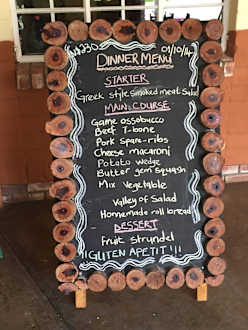 N$230
01/10/14
DINNER MENU
STARTER
Greek style smoked meat Salad
MAIN COURSE
Game ossobucco
Beef T-bone
Pork Spare-ribs
Cheese macaroni
Potato wedge
Butter gem squash
Mix Vegetable
Valley of Salad
Honnemade roll bread
DESSERT
Fruit strundel
!!GUTEN APETIT!!!